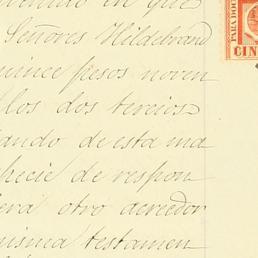 en que
Señores Hildebrand
quince pesos noven
los dos tercios
ando de esta ma
pecie de respon
era otro acreedor
misma testamen
PARA DOC
CIN